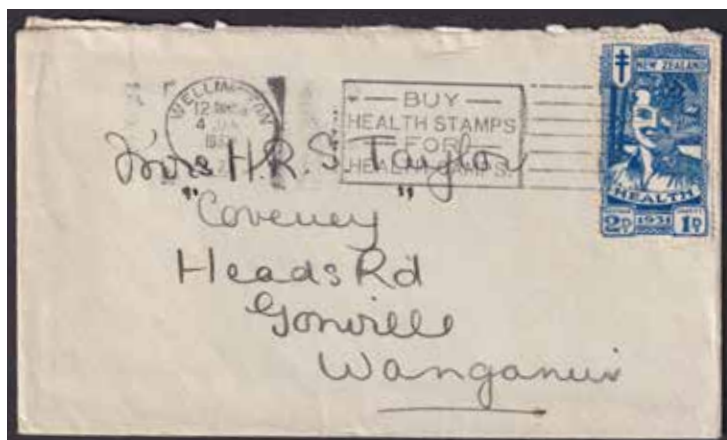 WELLINGTON
12
4
BUY
HEALTH STAMPS
FOR
HEALTH CAMPS
NEW ZEALAND
HEALTH
2D 1931 1D
Mrs H.R.S. Taylor
"Coveney"
Heads Rd
Gonville
Wanganui